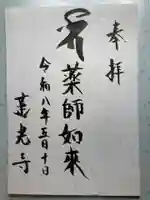 奉拝
薬師如来
令和八年五月十日
蓮光寺